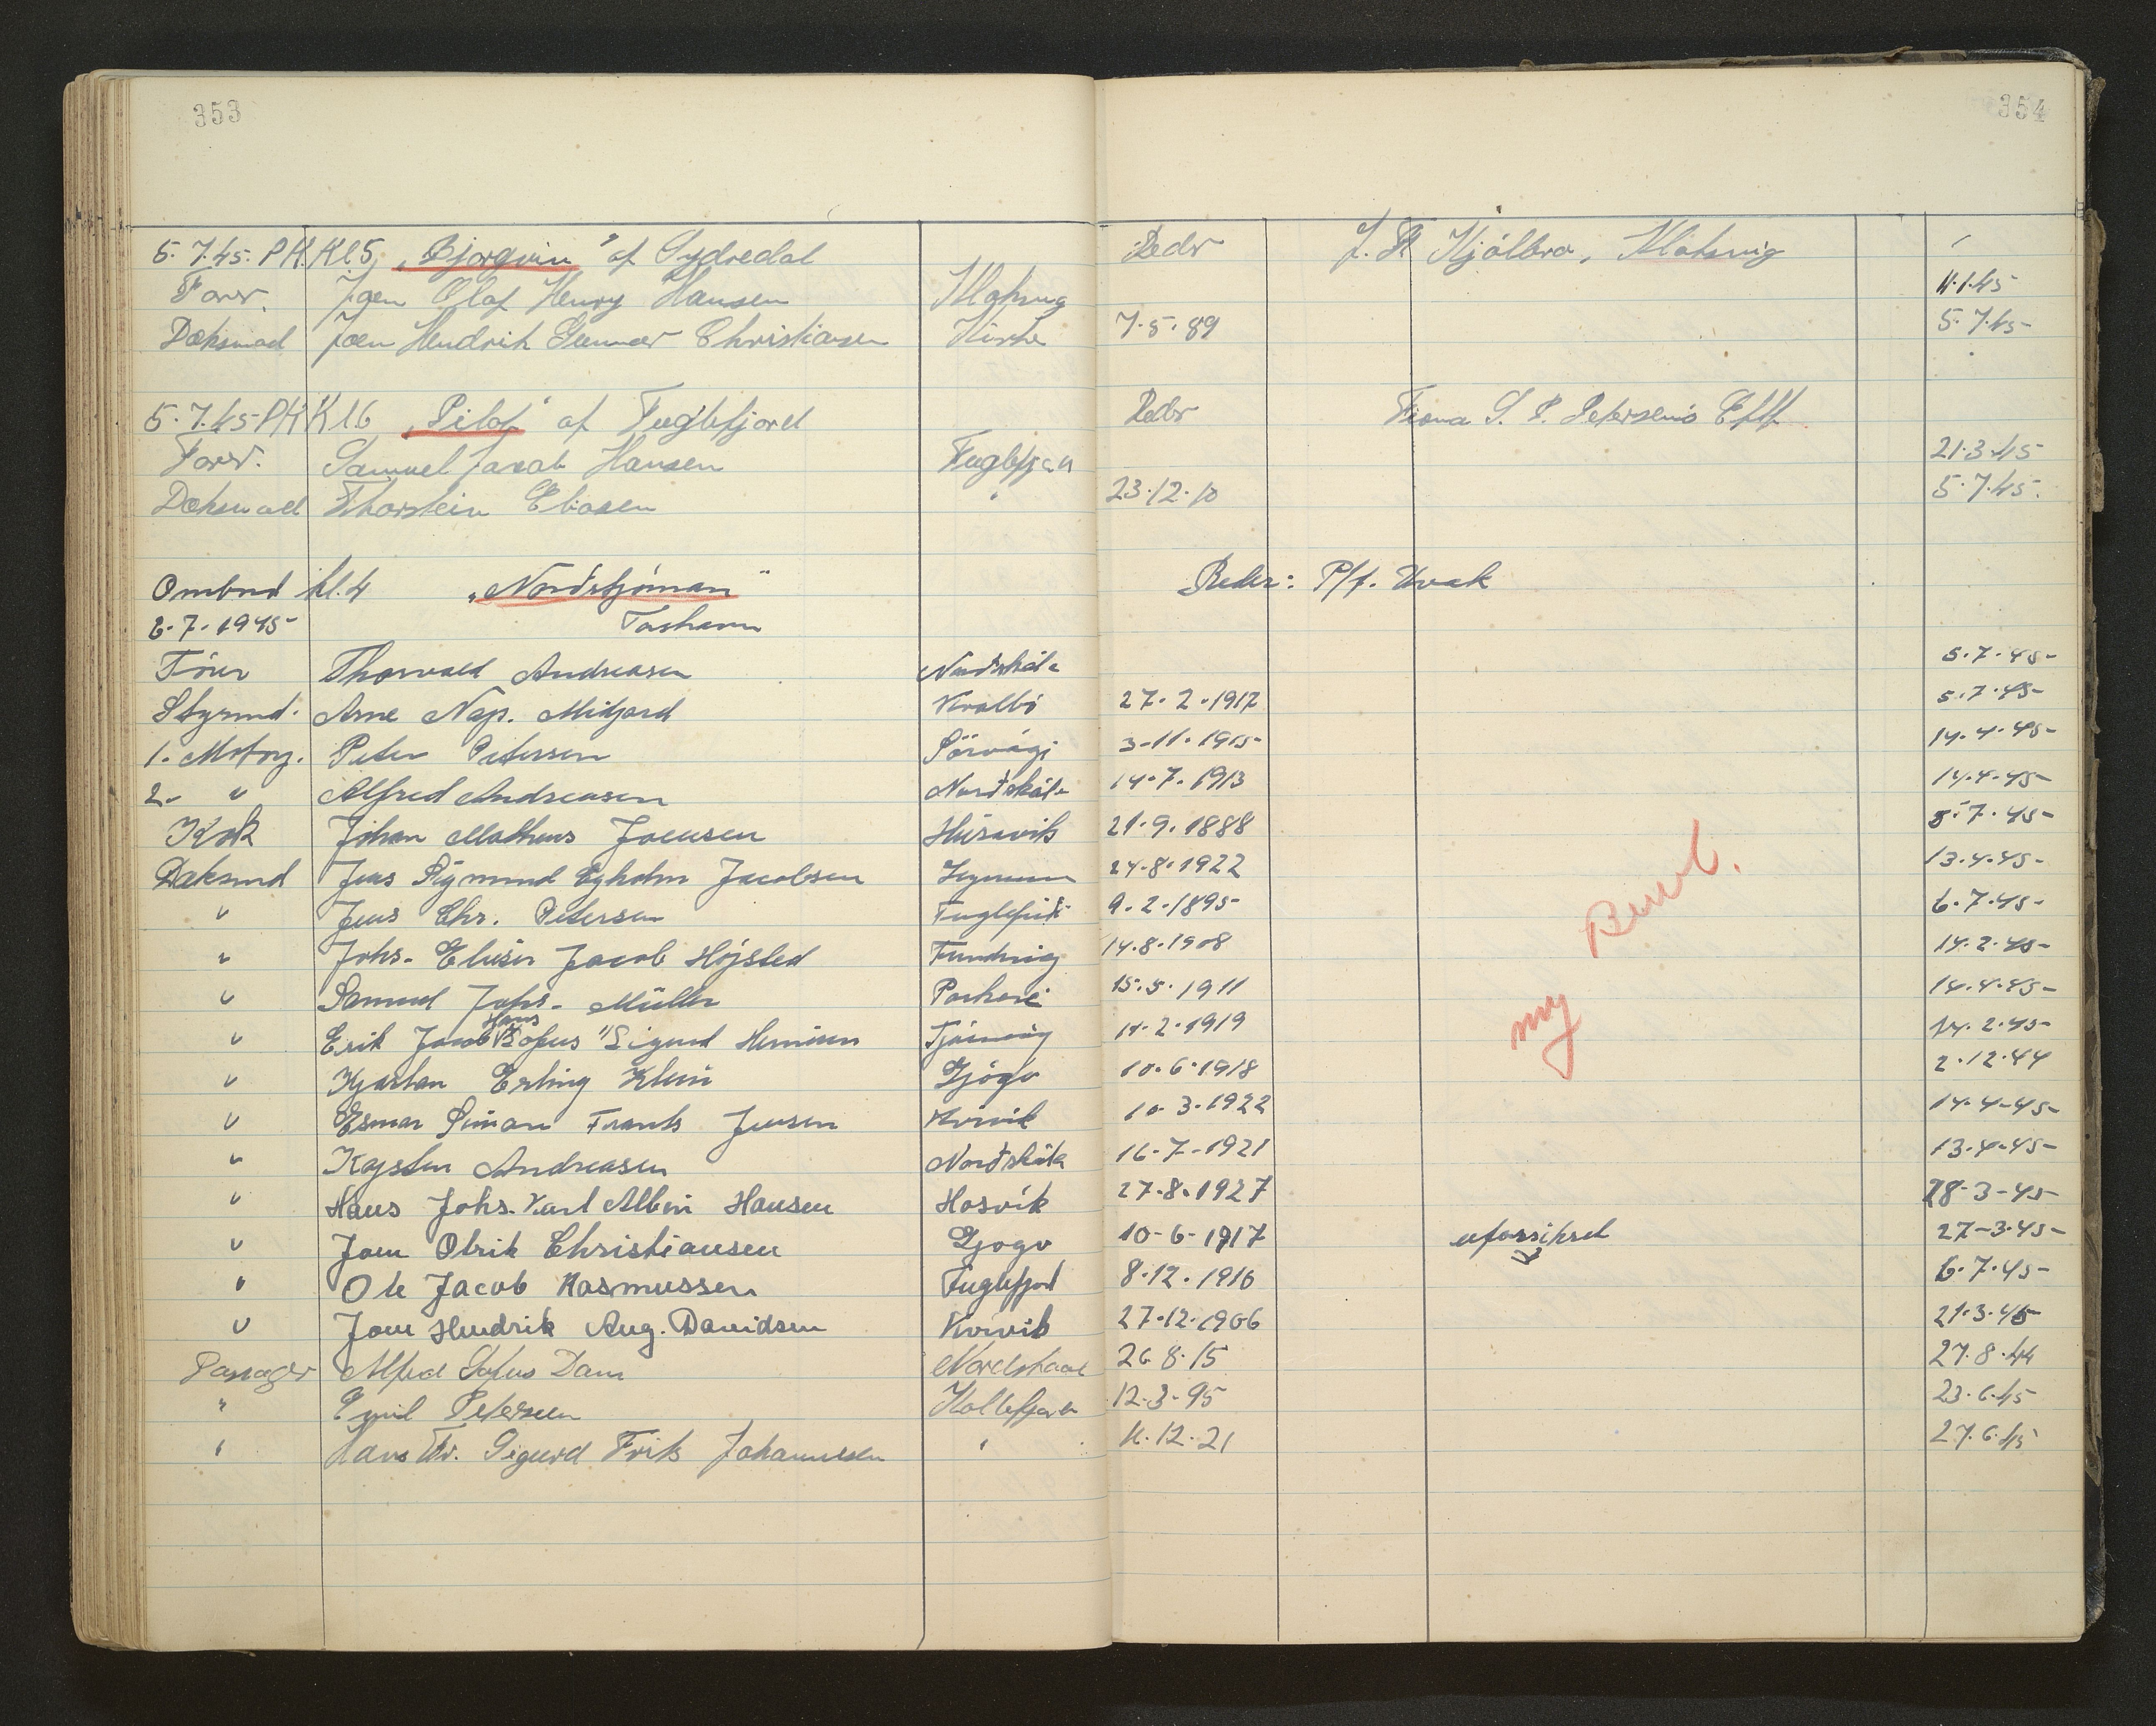 353
354
5.7.45. P.K. Kl 5 „Bjorgvin" af Sydredal Reder J. F. Kjølbro, Klaksvig
Fører Joen Olaf Henry Hansen Klaksvig 11.1.45
Dæksmad Joen Hendrik Gunnar Christiansen 7.5.89 5.7.45
5.7.45 P.K. Kl 6 „Pilot" af Fuglefjord Reder Firma S. P. Petersens Eftf.
Fører. Samuel Jacob Hansen Fuglefjord 21.3.45
Dæksmad Thorstein Eliasen " 23.12.10 5.7.45.
Ombud kl. 4 „Nordstjornan" Reder: P/f.
6.7.1945 Torshavn
Förer Thorvald Andreasen Nordskála 5.7.45
Styrmd. Arne Nap. Midjord Kvalbö 27.2.1917 5.7.45
1. Motorp. Peter Petersen Sörvági 3-11-1915 14.4.45
2. " Alfred Andreasen Nordskála 14.7.1913 14.4.45
Kok Johan Matheus Joensen Húsavik 21.9.1888 5.7.45
Daksmd Jens Sigmund Egholm Jacobsen 24.8.1922 13.4.45
" Jens Chr. Petersen 9.2.1895 6.7.45
" Johs. Elieser Jacob Højsted Funding 14.8.1908 14.2.45
" Samuel Johs. Müller Porkeri 15.5.1911 14.4.45
" Erik Jacob Hans Sofus Sigurd 11.2.1919 14.2.45
" Kjartan Erling Klein Gjógv 10.6.1918 2.12.44
" Esmar Simon Frants Jensen Kvivik 10.3.1922 14.4.45
" Kajsten Andreasen Nordskála 16.7.1921 13.4.45
" Hans Johs. Karl Albin Hansen Hosvik 27.8.1927 28-3-45
" Joen Olrik Christiansen Gjogv 10-6-1917 uforsikret 27-3-45
" Ole Jacob Rasmussen Fuglefjord 8.12.1916 6.7.45
" Joen Hendrik Aug. Davidsen Kvivik 27.12.1906 21.3.45
Passager Alfred Sofus Dam Nordskaale 26.8.15 27.8.44
" Emil Petersen Kollefjord 12.3.95 23.6.45
" Hans Fr. Sigurd Frits Johannesen " 11.12.21 27.6.45